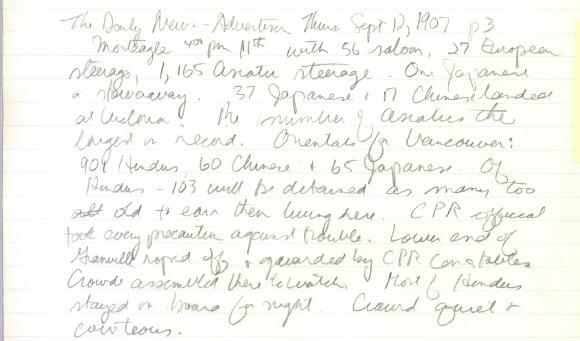 The Daily News-Advertiser Thurs Sept 12, 1907 p3
Monteagle 4:00 pm 11th with 56 saloon, 27 European
steerage, 1,165 Asiatic steerage. One Japanese
a stowaway. 37 Japanese + 17 Chinese landed
at Victoria. The number of asiatics the
largest on record. Orientals for Vancouver:
901 Hindus, 60 Chinese + 65 Japanese. Of
Hindus - 103 will be detained as many too
old to earn their living here. CPR official
took every precaution against trouble. Lower end of
Granville roped off + guarded by CPR Constables
Crowds assembled there to watch. Most of Hindus
stayed on board for night. Crowd quiet +
courteous.